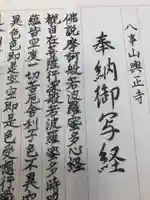 八事山興正寺
奉納御写経
佛説摩訶般若波羅蜜多心経
観自在菩薩行深般若波羅蜜多時
蘊皆空度一切苦厄舎利子色不異
異色色即是空空即是色受想行